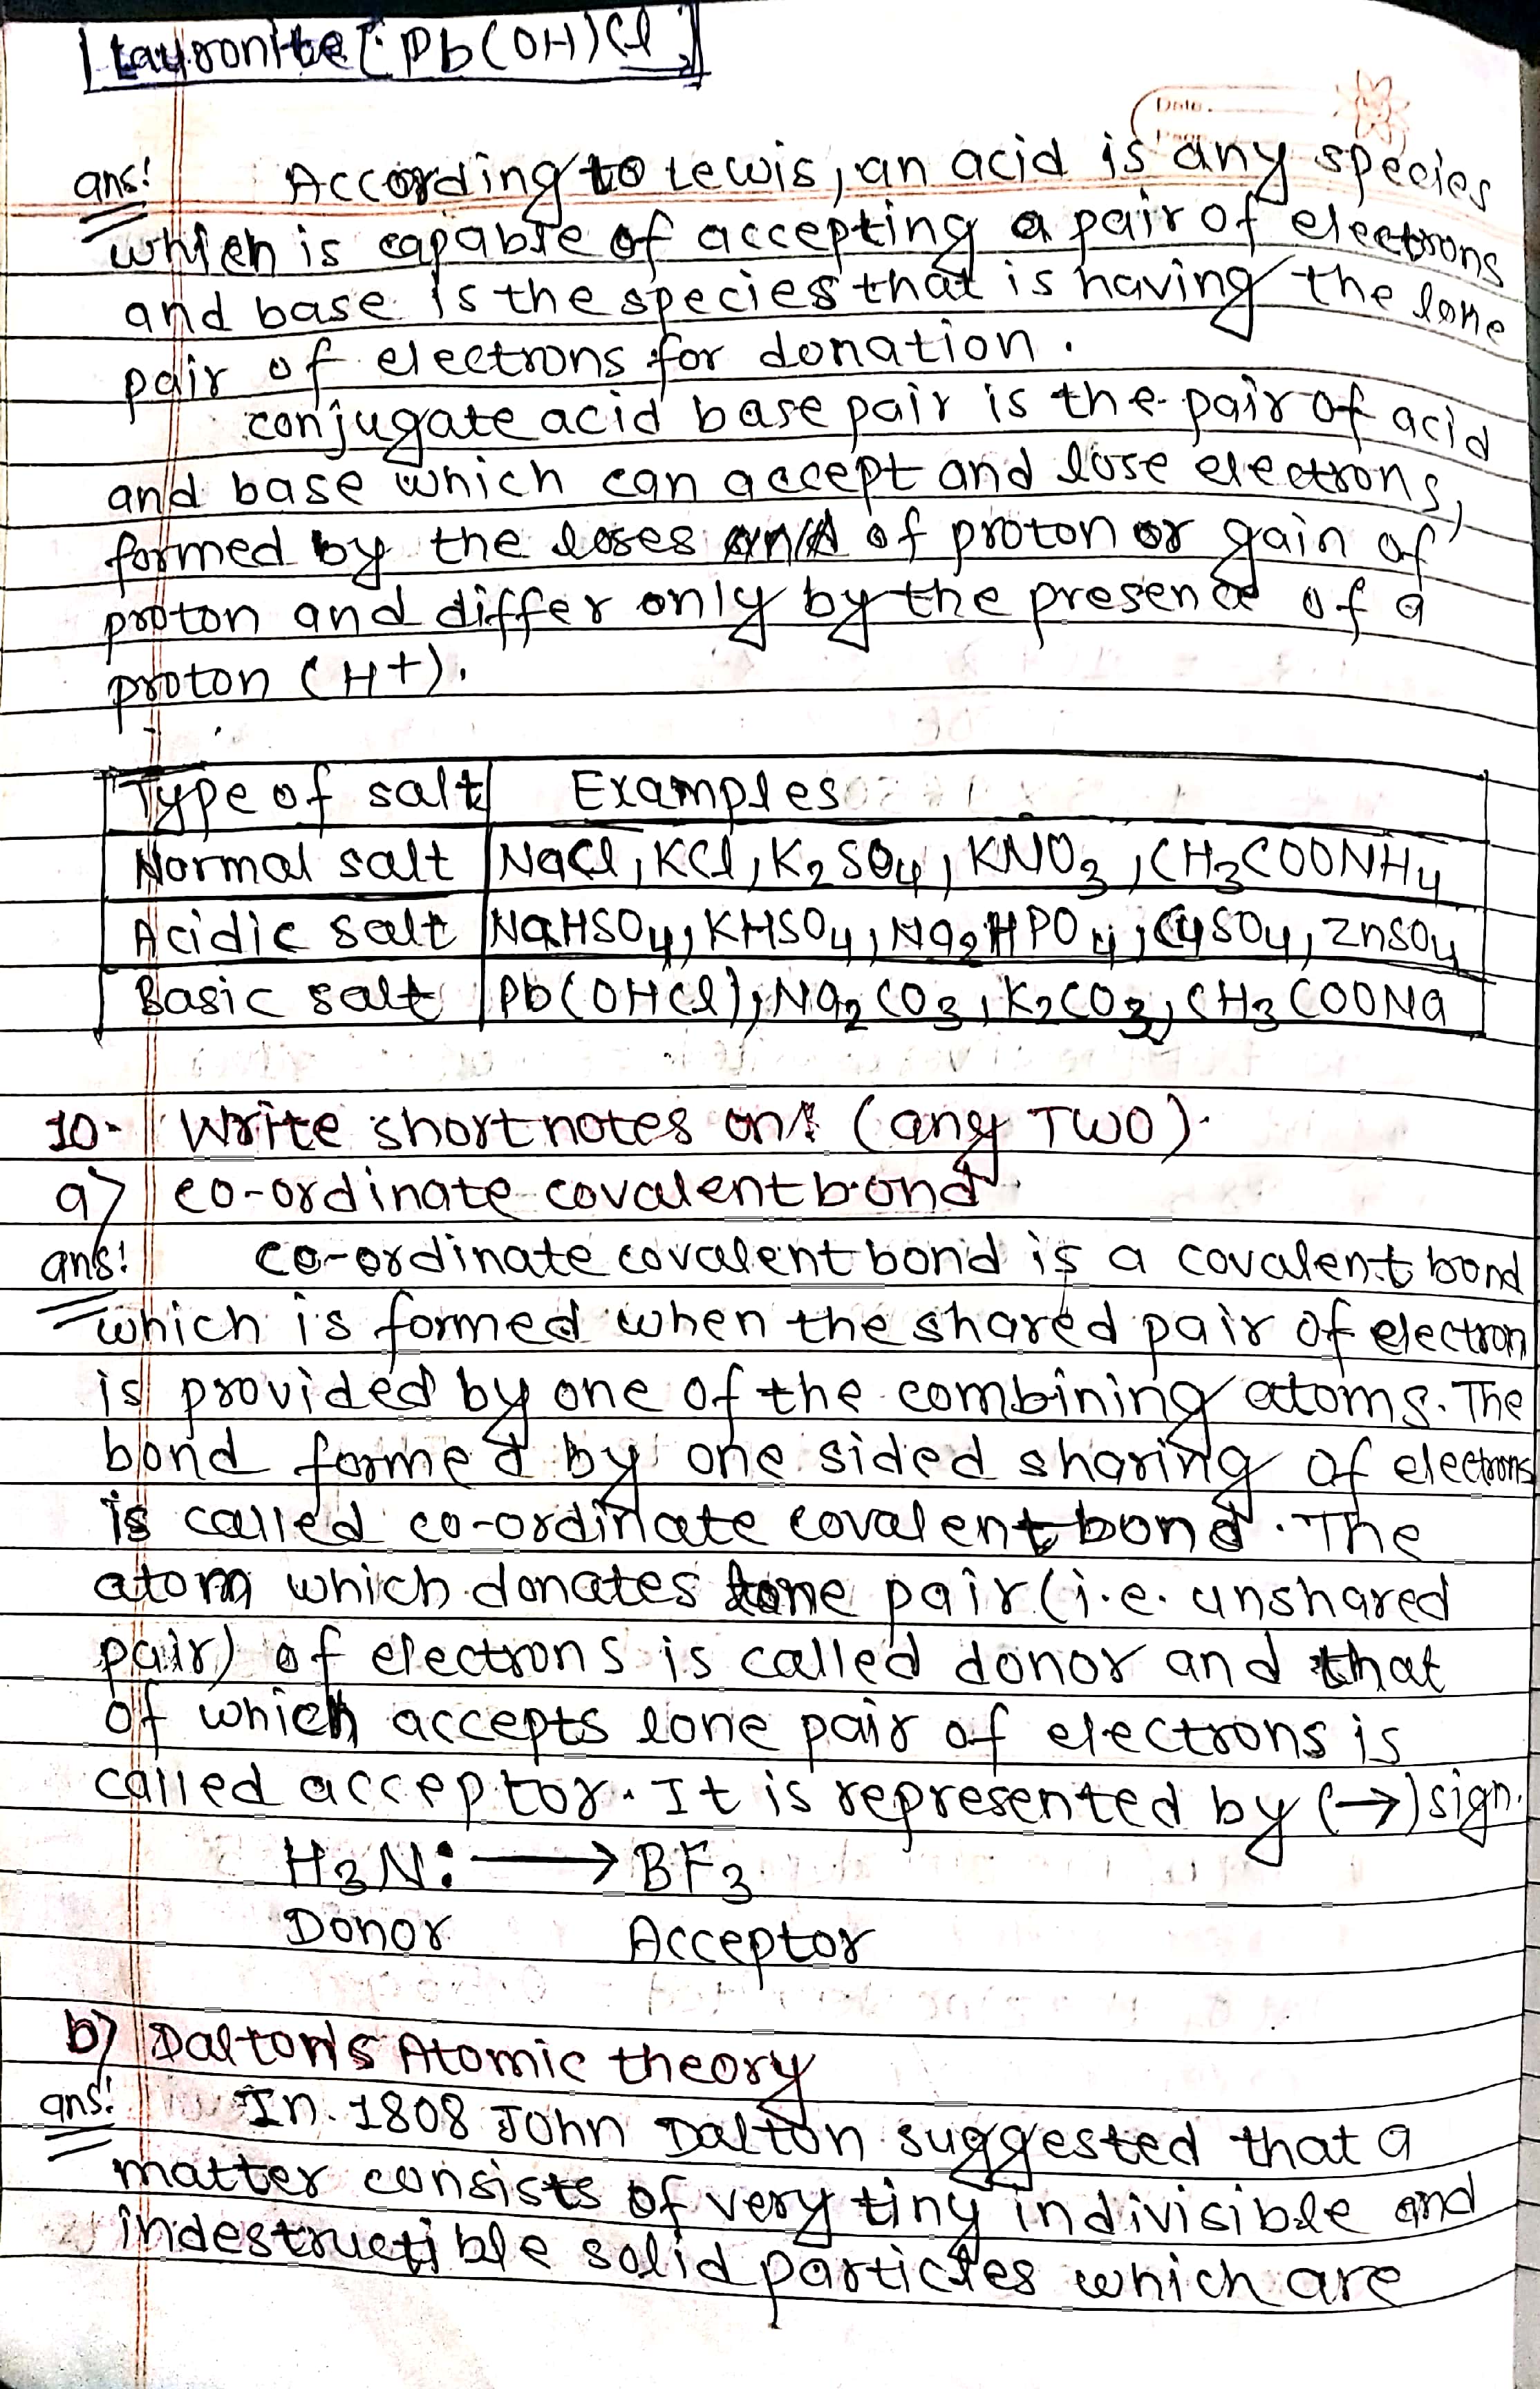 lauronite [: Pb(OH)Cl₂]
Date.
ans: According to Lewis, an acid is any species
which is capable of accepting a pair of electrons
and base is the species that is having the lone
pair of electrons for donation.
conjugate acid base pair is the pair of acid
and base which can accept and lose electrons,
formed by the loses of proton or gain of
proton and differ only by the presence of a
proton (H+).
Type of salt Examples
Normal salt NaCl, KCl, K₂SO₄, KNO₃, CH₃COONH₄
Acidic salt NaHSO₄, KHSO₄, Na₂HPO₄, CuSO₄, ZnSO₄
Basic salt Pb(OHCl), Na₂CO₃, K₂CO₃, CH₃COONa
10- Write short notes on: (any TWO).
a) co-ordinate covalent bond
ans: co-ordinate covalent bond is a covalent bond
which is formed when the shared pair of electron
is provided by one of the combining atoms. The
bond formed by one sided sharing of electrons
is called co-ordinate covalent bond. The
atom which donates lone pair (i.e. unshared
pair) of electrons is called donor and that
of which accepts lone pair of electrons is
called acceptor. It is represented by (→) sign.
H₃N: → BF₃
Donor Acceptor
b) Dalton's Atomic theory
ans: In. 1808 John Dalton suggested that a
matter consists of very tiny indivisible and
indestructible solid particles which are